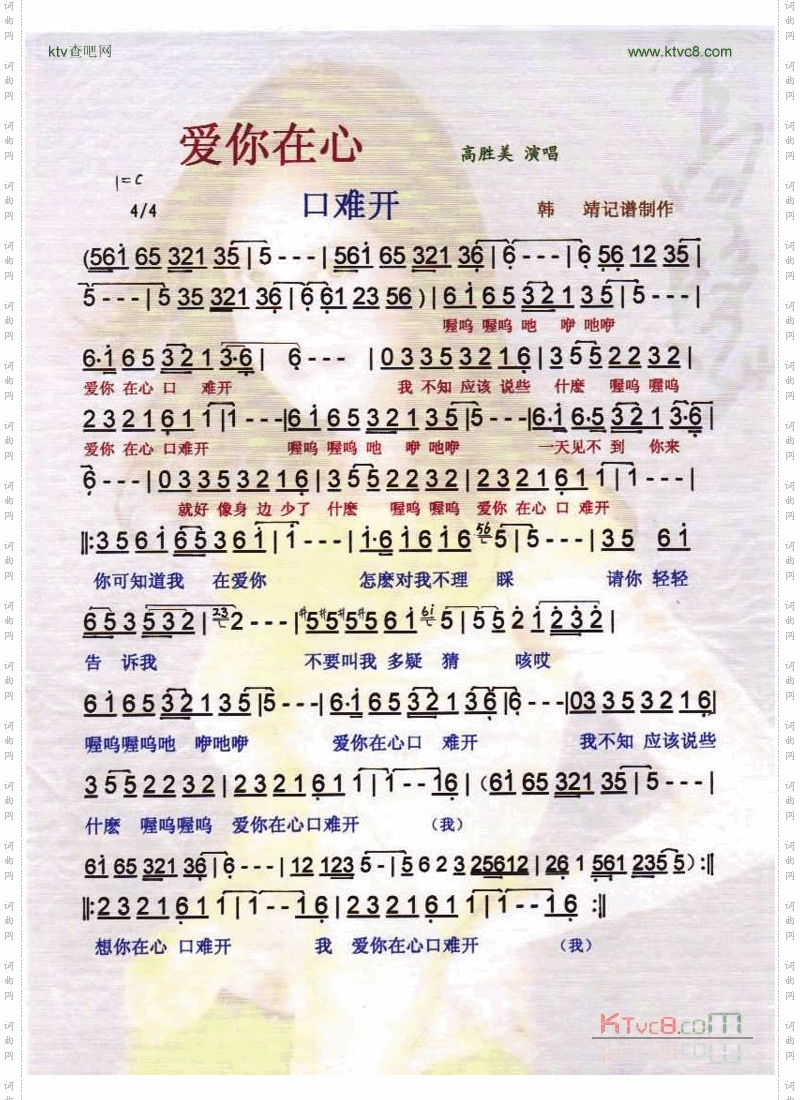 ktv查吧网 www.ktvc8.com
爱你在心 高胜美 演唱
1=C
4/4 口难开 韩 靖记谱制作
(561 65 321 35 | 5 - - - | 561 65 321 36 | 6 - - - | 6 56 12 35 |
5 - - - | 5 35 321 36 | 6 61 23 56 ) | 61 65 32 135 | 5 - - - |
喔呜 喔呜 吔 咿 吔咿
6·1 65 32 1 3·6 | 6 - - - | 03 35 32 16 | 3 55 22 32 |
爱你 在心 口 难开 我 不知 应该 说些 什麽 喔呜 喔呜
23 21 61 1 | 1 - - - | 61 65 32 135 | 5 - - - | 6·1 6·5 32 1 3·6 |
爱你 在心 口难开 喔呜 喔呜 吔 咿 吔咿 一天见不 到 你来
6 - - - | 03 35 32 16 | 3 55 22 32 | 23 21 61 1 | 1 - - - |
就好 像身 边 少了 什麽 喔呜 喔呜 爱你 在心 口 难开
‖: 35 61 65 361 | 1 - - - | 1·6 16 16 56 5 | 5 - - - | 35 61
你可知道我 在爱你 怎麽对我不理 睬 请你 轻轻
65 3 532 | 23 2 - - - | #5#5#5#5 61 61 5 | 5 52 1 232 |
告 诉我 不要叫我 多疑 猜 咳哎
61 65 32 135 | 5 - - - | 6·1 65 32 1 36 | 6 - - - | 03 35 32 16 |
喔呜喔呜吔 咿吔咿 爱你在心口 难开 我不知 应该说些
3 55 22 32 | 23 21 61 1 | 1 - - 16 | (61 65 321 35 | 5 - - - |
什麽 喔呜喔呜 爱你在心口难开 （我）
61 65 321 36 | 6 - - - | 12 123 5 - | 5 6 2 3 25612 | 26 1 561 235 5 ) :‖
‖: 23 21 61 1 | 1 - - 16 | 23 21 61 1 | 1 - - 16 :‖
想你在心 口难开 我 爱你在心口难开 （我）
KTvc8.com